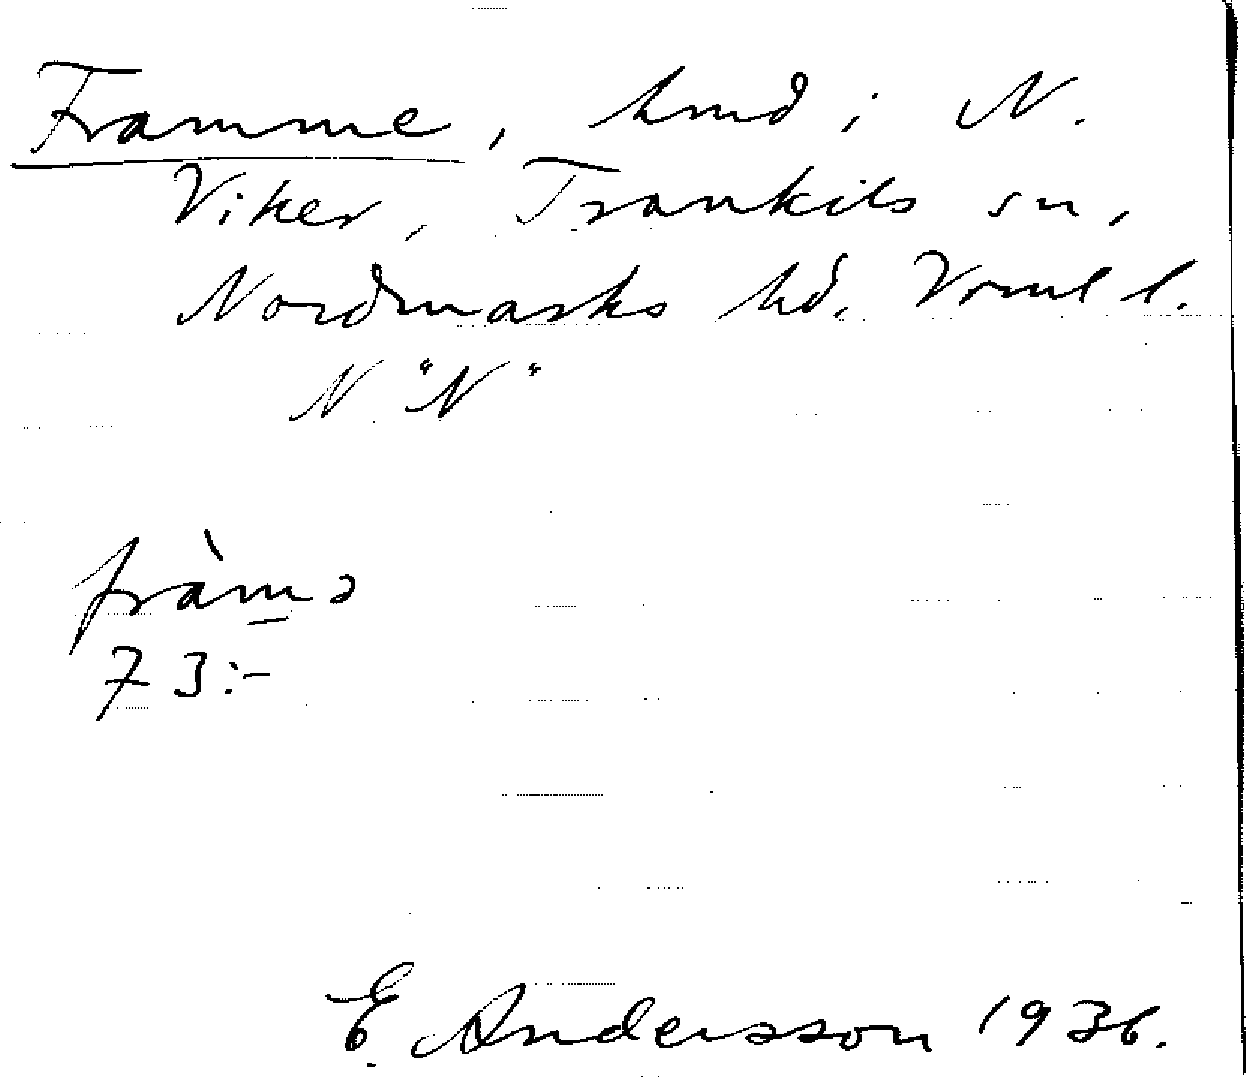 Framme, hmd i N.
Viker, Trankils sn,
Nordmarks hd. Vrml l.
N. "N"
fràmə
73:-
E. Andersson 1936.